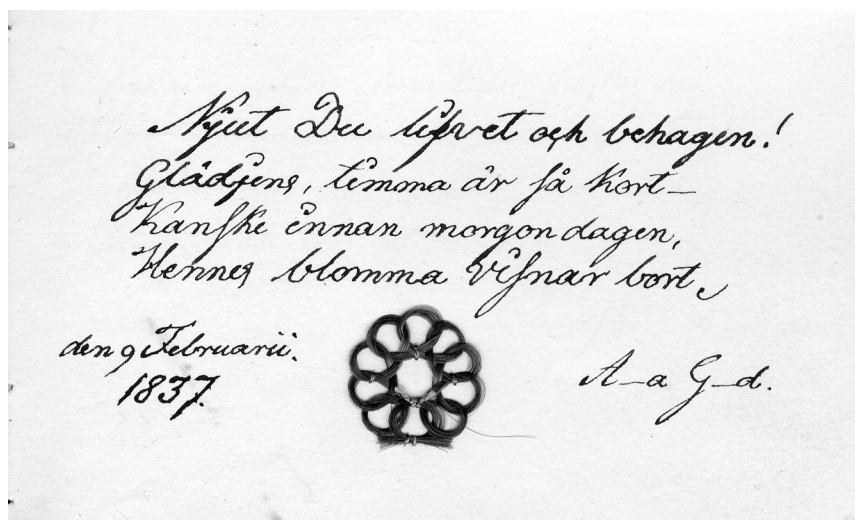 Njut Du lifvet och behagen!
Glädjens, timma är så kort–
Kanske innan morgondagen,
Hennes blomma visnar bort,
den 9 Februarii.
1837.
A–a G–d.